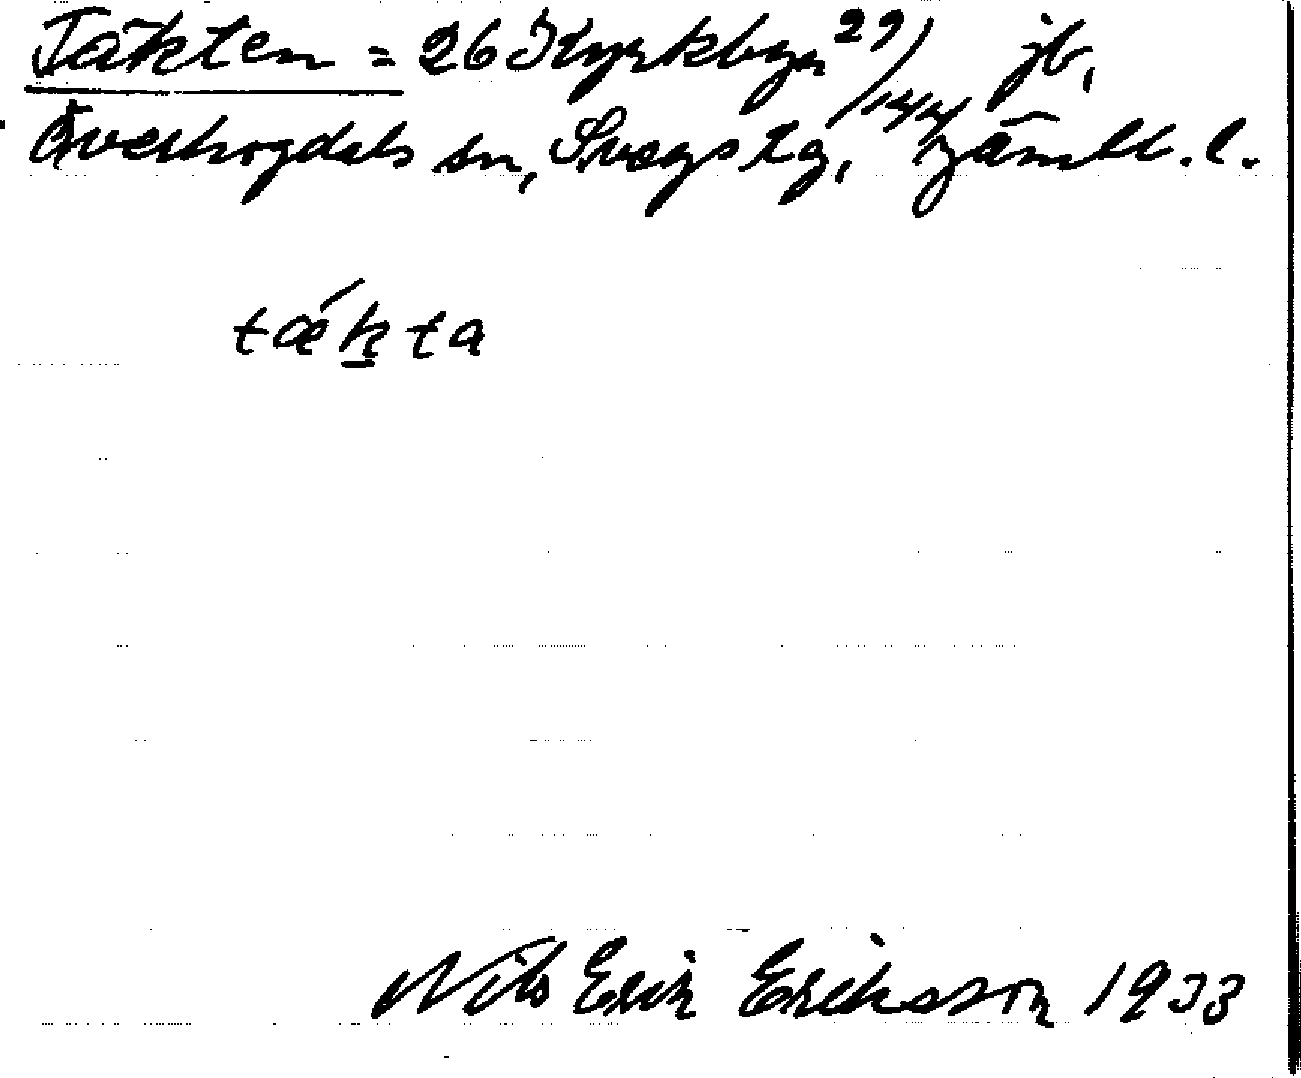 Täkten = 26 Kyrkbyn 29/144 jb,
Överhogdals sn, Svegs tg, Jämtl. l.
tǽkta
Nils Erik Eriksson 1933